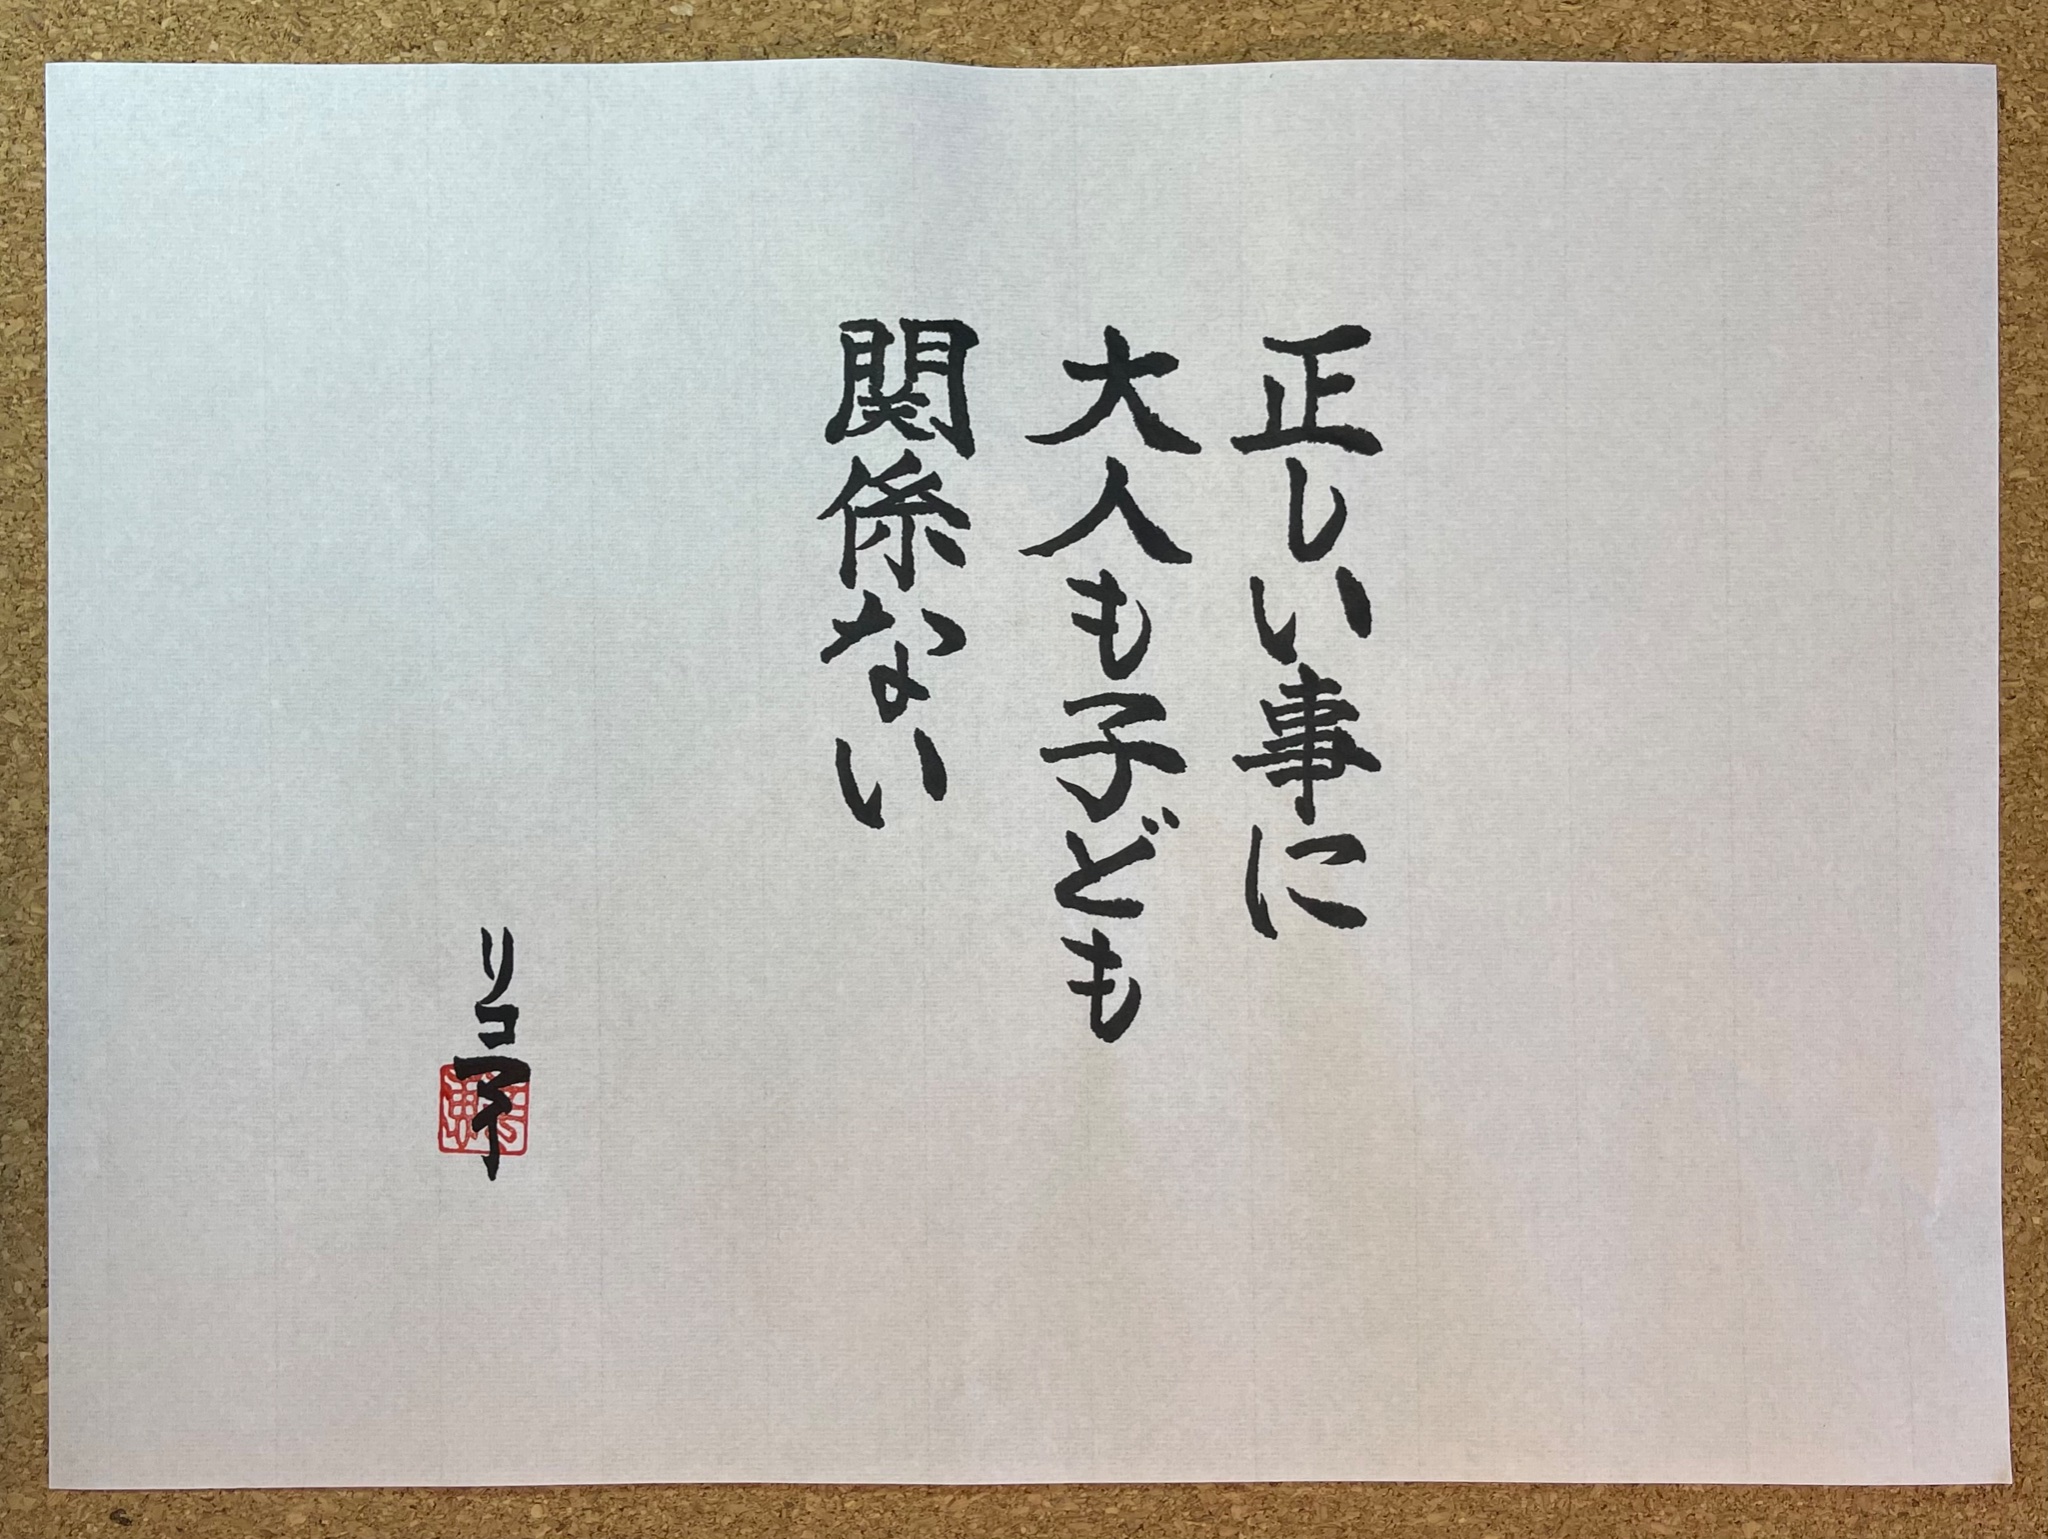 正しい事に
大人も子どもも
関係ない
リコ